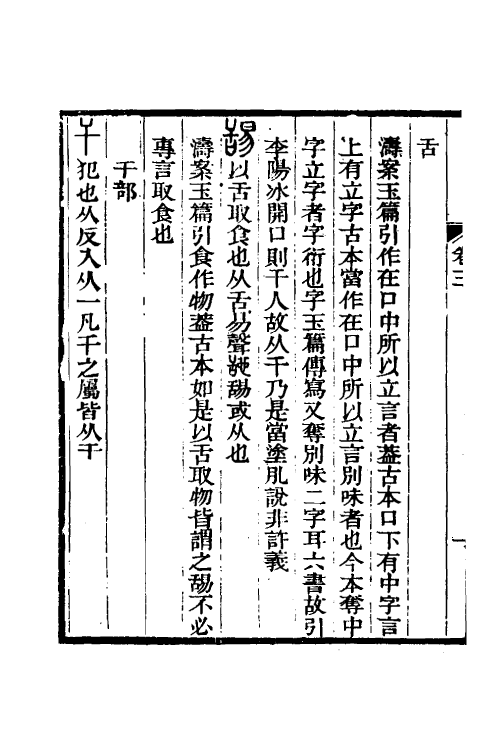 卷三
一
舌
濤案玉篇引作在口中所以立言者葢古本口下有中字言
上有立字古本當作在口中所以立言別味者也今本奪中
字立字者字衍也字玉篇傳寫又奪別味二字耳六書故引
李陽冰開口則干人故从干乃是當塗肊說非許義
𦧇以舌取食也从舌易聲䑛𦧇或从也
濤案玉篇引食作物葢古本如是以舌取物皆謂之𦧇不必
專言取食也
干部
干犯也从反入从一凡干之屬皆从干